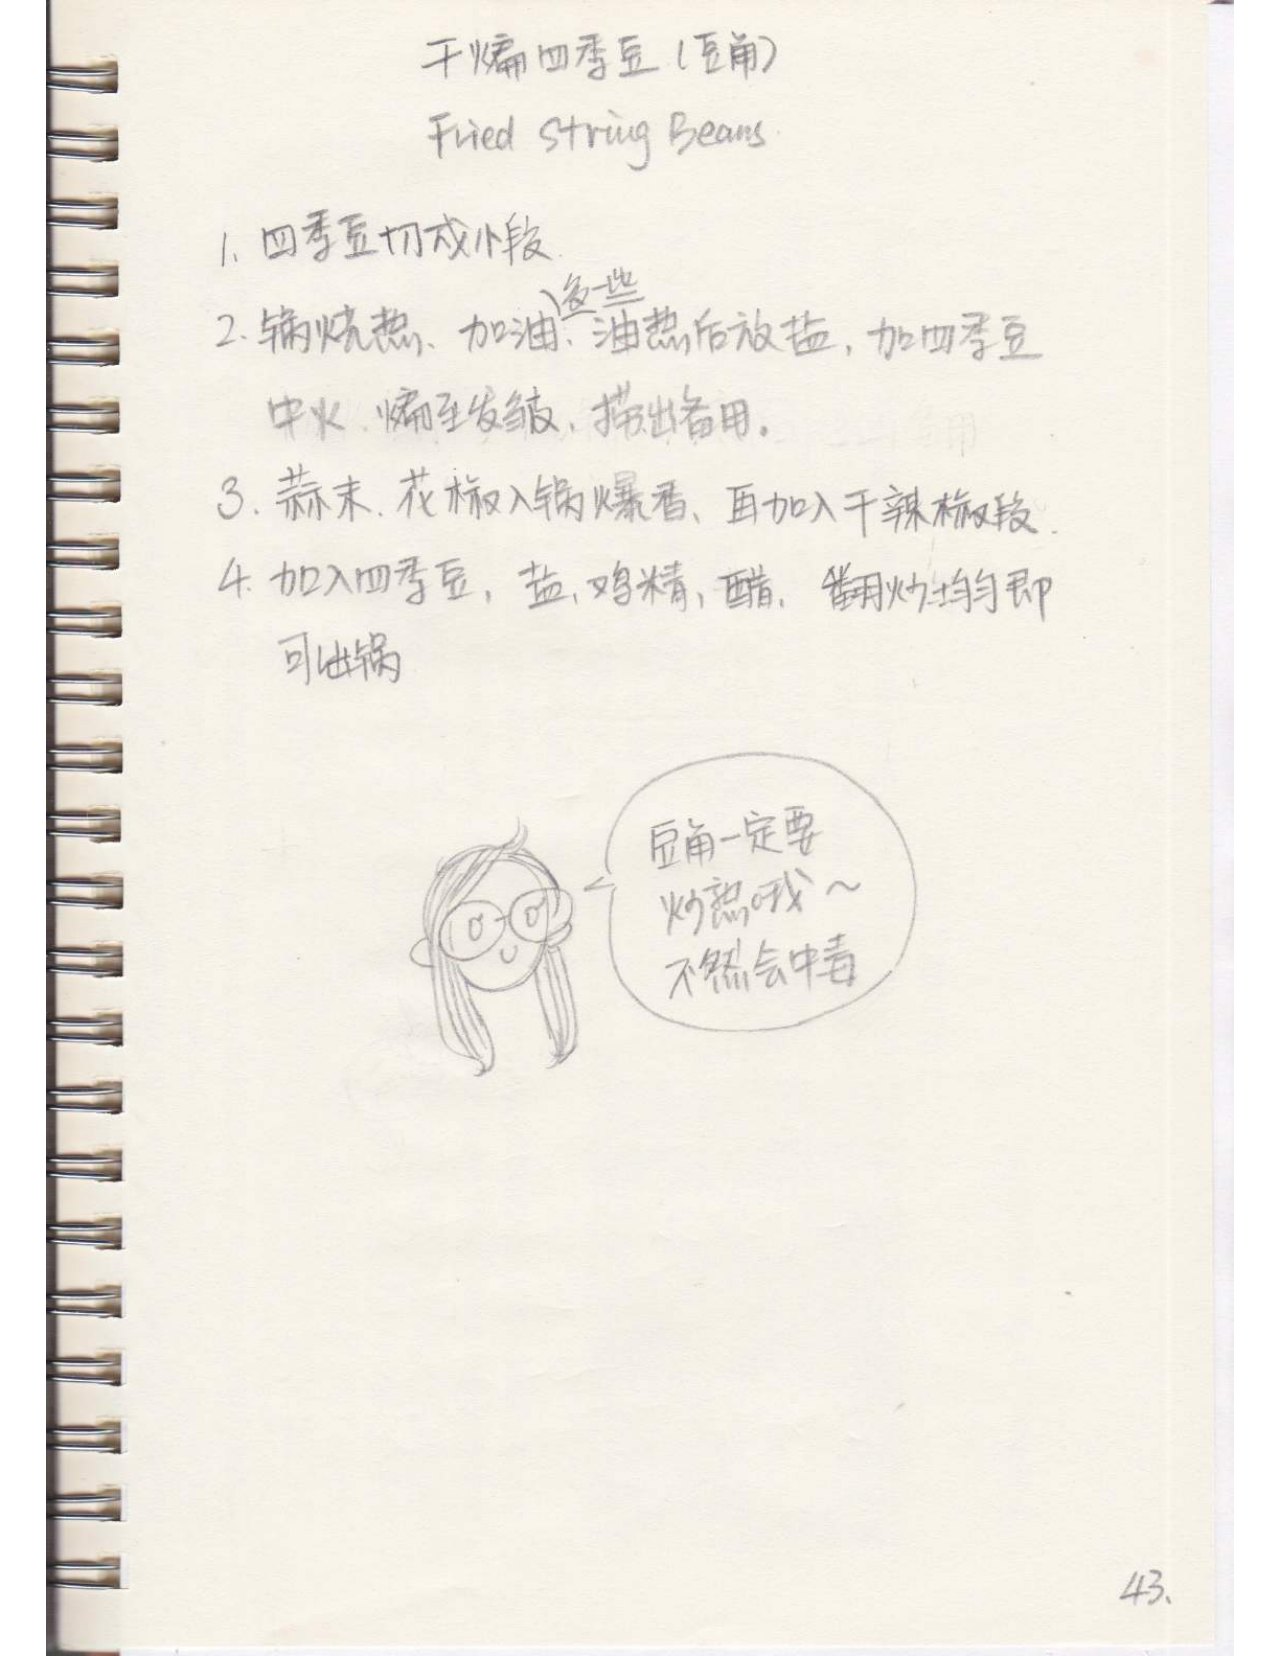 干煸四季豆(豆角)
Fried String Beans.
1. 四季豆切成小段.
多一些
2. 锅烧热、加油、油热后放盐,加四季豆
中火.煸至发皱、捞出备用。
3. 蒜末.花椒入锅爆香、再加入干辣椒段.
4. 加入四季豆,盐、鸡精,醋.翻炒均匀即
可出锅
豆角一定要
炒熟哦~
不然会中毒
43.